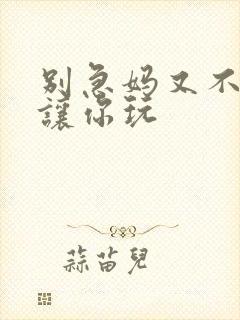 别急妈又不
讓你玩
蒜苗兒